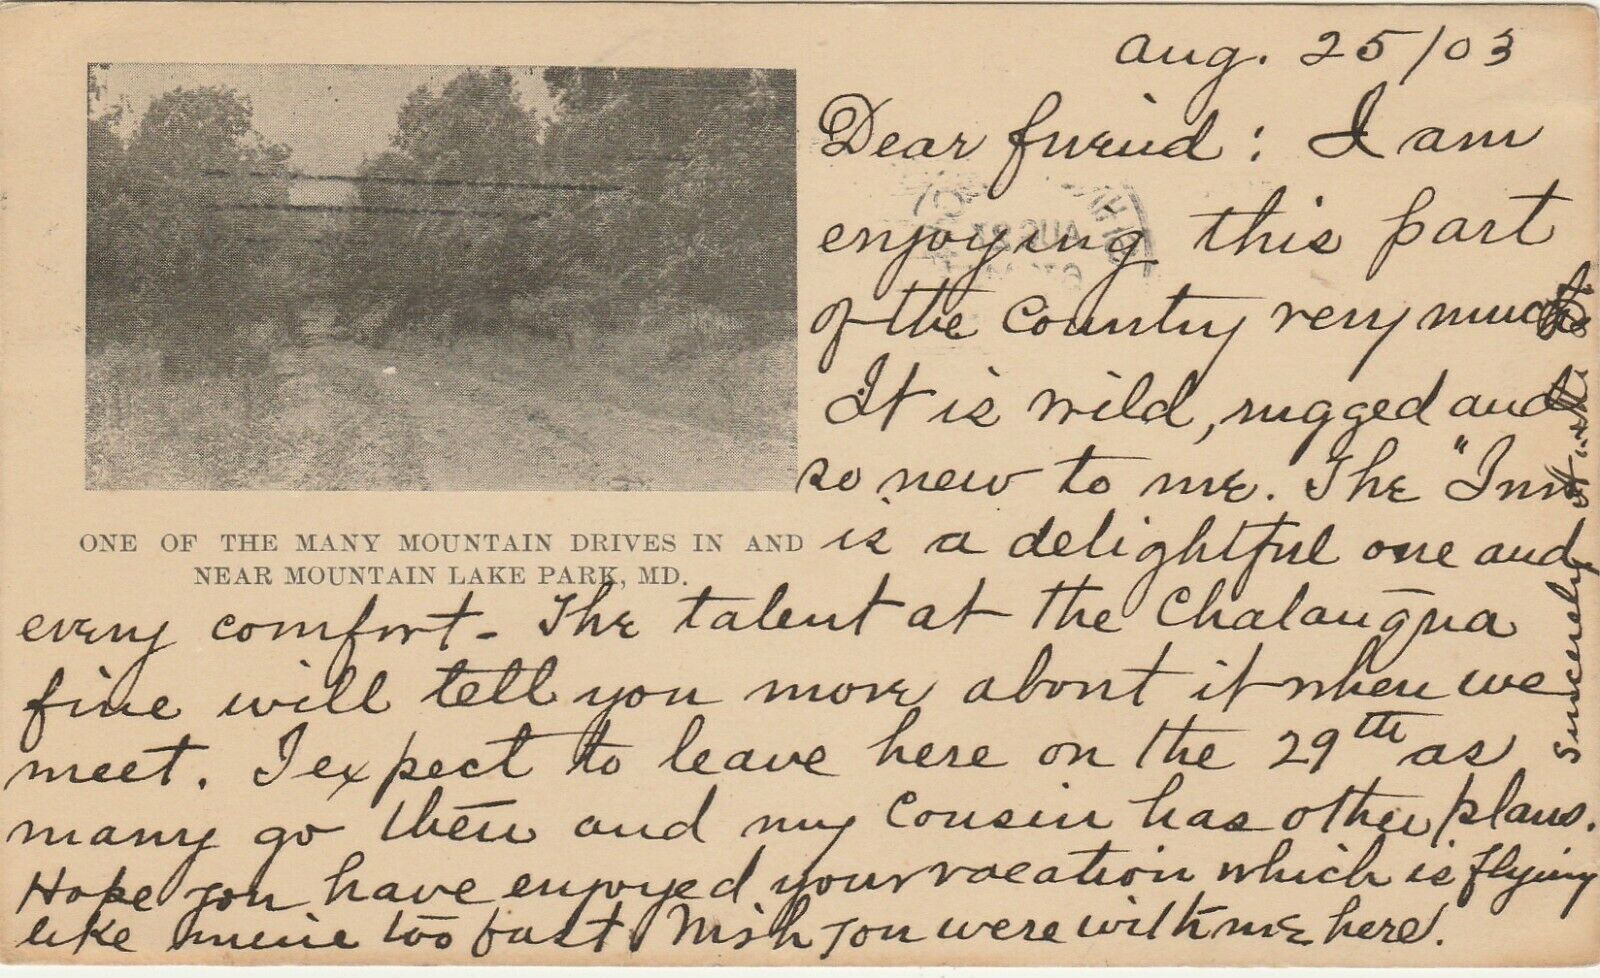 Aug. 25/03
Dear friend: I am
enjoying this part
of the country very much.
It is wild, rugged and
so new to me. The "Inn"
is a delightful one and
ONE OF THE MANY MOUNTAIN DRIVES IN AND
NEAR MOUNTAIN LAKE PARK, MD.
every comfort - The talent at the Chalauqua
fine will tell you more about it when we
meet. I expect to leave here on the 29th as
many go then and my cousin has other plans.
Hope you have enjoyed your vacation which is flying
like mine too fast. Wish you were with me here.
Sincerely
AUG 27